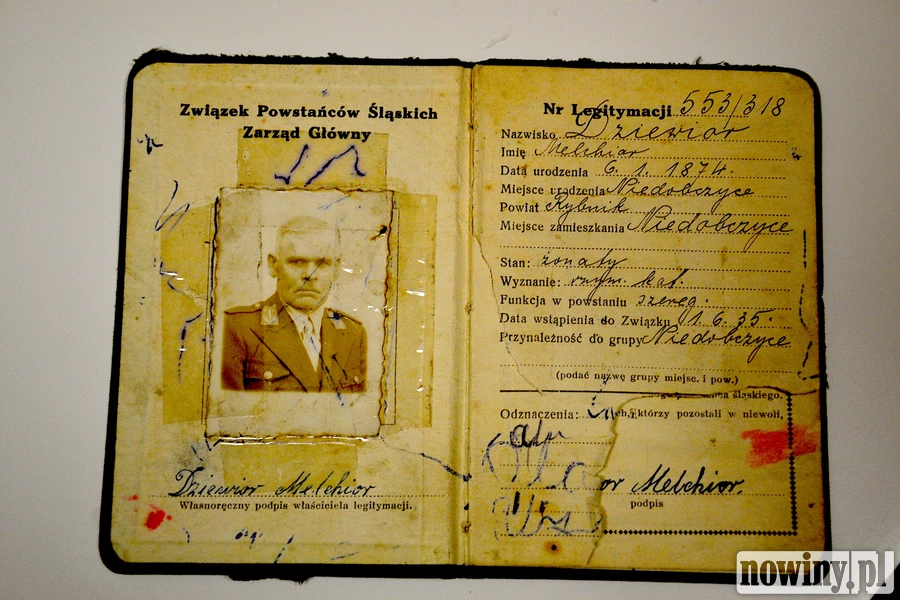 Związek Powstańców Śląskich
Zarząd Główny
Dziewior Melchior
Własnoręczny podpis właściciela legitymacji.
Nr Legitymacji 553/318
Nazwisko Dziewior
Imię Melchior
Data urodzenia 6. 1. 1874.
Miejsce urodzenia Niedobczyce
Powiat Rybnik
Miejsce zamieszkania Niedobczyce
Stan: żonaty
Wyznanie: rzym. kat.
Funkcja w powstaniu szereg.
Data wstąpienia do Związku 1. 6. 35.
Przynależność do grupy Niedobczyce
(podać nazwę grupy miejsc. i pow.)
śląskiego.
Odznaczenia: którzy pozostali w niewoli,
or Melchior.
podpis
nowiny.pl